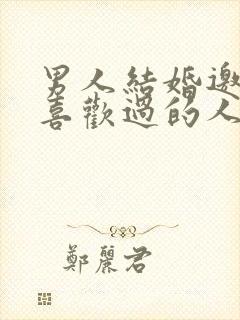 男人結婚邀
喜歡過的人
鄭麗君